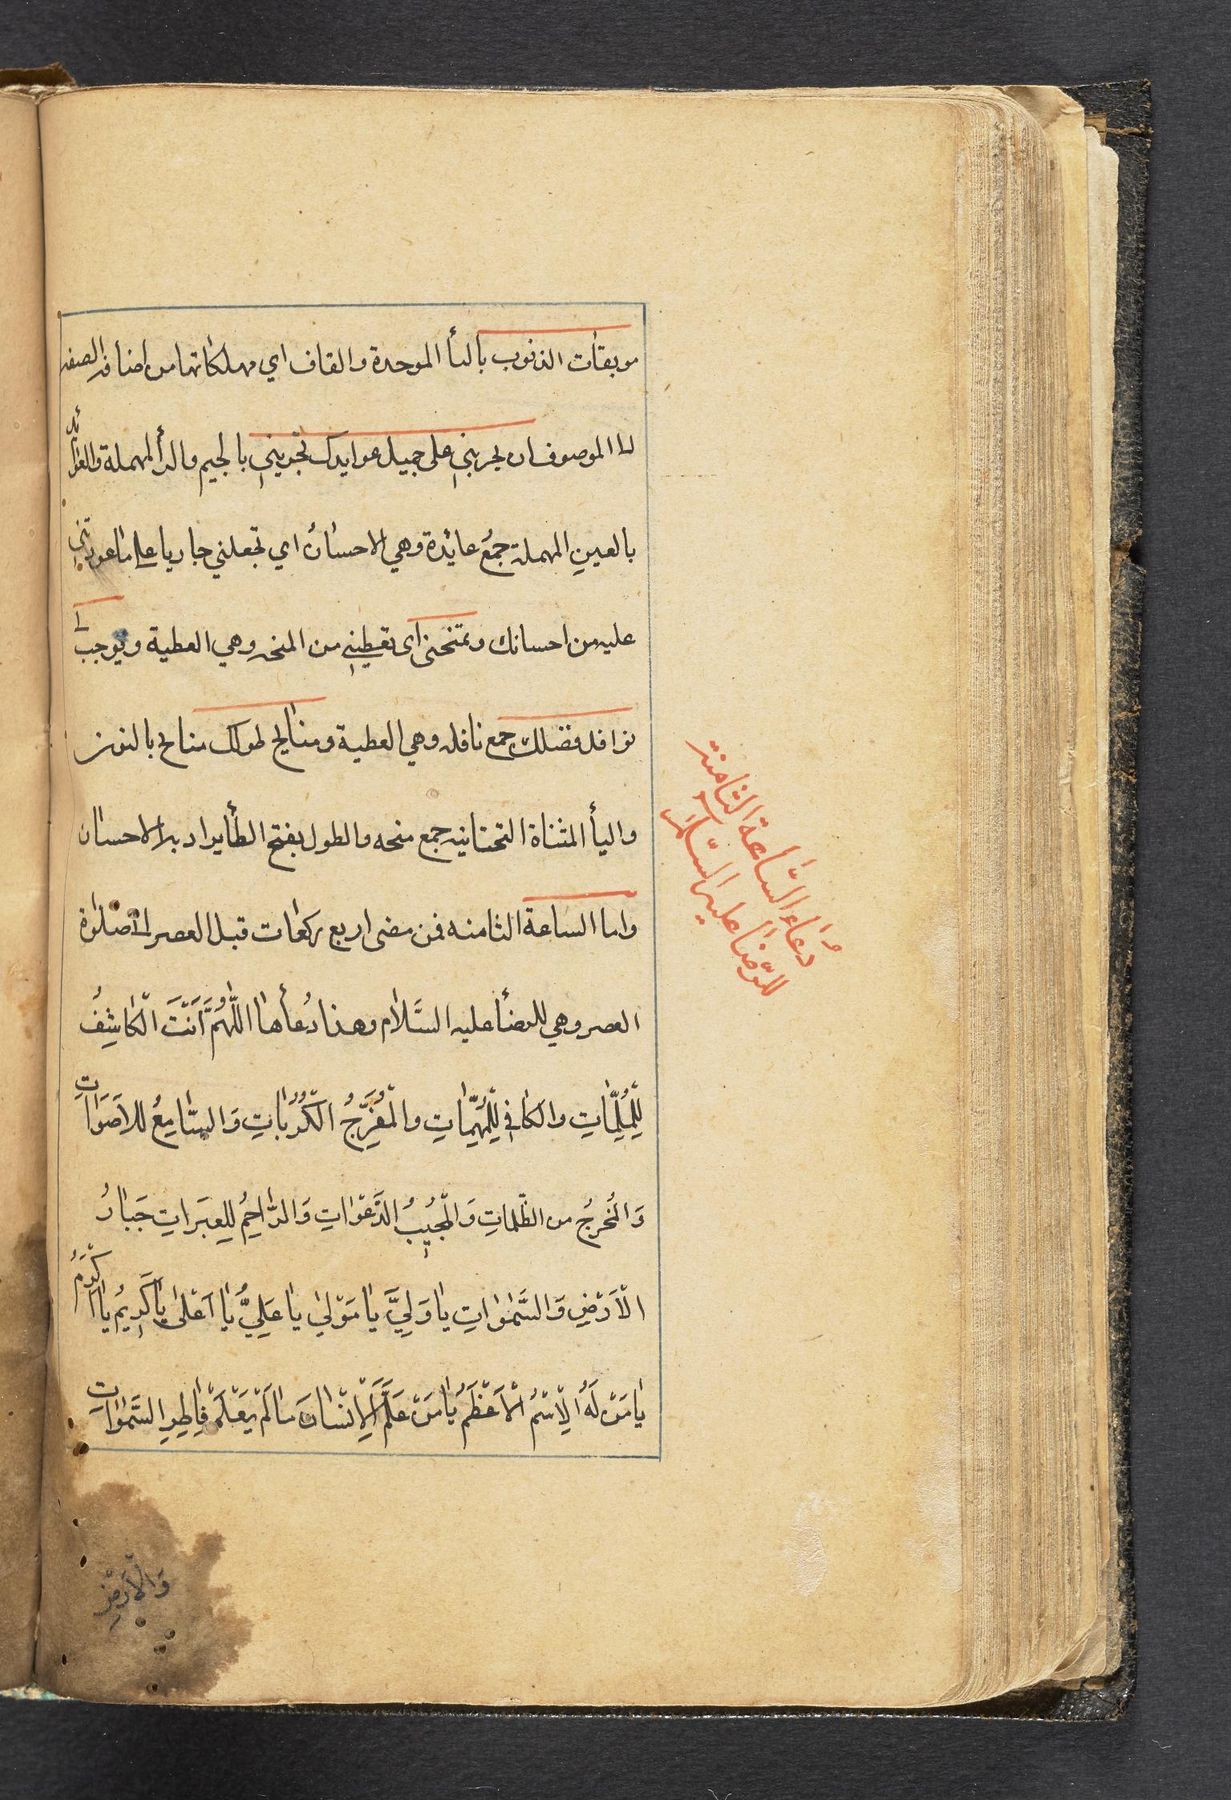 موبقات الذنوب بالبأ الموحدة والقاف اي مهلكاتها من اضافة الصفه
الى الموصوف ان تجريني على جميل عوايدك تجريني بالجيم والرأ المهملة والعوائد
بالعين المهملة جمع عائدة وهي الاحسان اي تجعلني جاريا على ما عودتني
عليه من احسانك وتمنحني اى تعطيني من المنحه وهي العطية ويوجب لي
نوافل فضلك جمع نافله وهي العطية ومنايح طولك منايح بالنون
واليأ المثناة التحتانيه جمع منحه والطول بفتح الطأ يراد به الاحسان
واما الساعة الثامنه فمن مضى اربع ركعات قبل العصر الى صلوة
العصر وهي للرضأ عليه السَّلام وهذا دُعأها اللَّهُمَّ اَنْتَ الْكاشِفُ
لِلْمُلِمَّاتِ والكافي لِلْمُهِمَّاتِ والْمُفَرِّجُ الْكُرُباتِ وَالسَّامِعُ للاَصْوَاتِ
وَالمُخرِجُ من الظّلماتِ وَالْمُجيبُ الدَّعَوٰاتِ وَالرَّاحِمُ لِلعبَراتِ جَبارُ
الْاَرْضِ وَالسَّمٰوٰاتِ يا وَلِيَّ يا مَوْلىٰ يا عَلِيُّ يا اَعْلىٰ يا كَرِيُم يا اَكْرَمُ
يا مَنْ لَهُ الِاسْمُ الْاَعْظَمُ يا مَنْ عَلَّمَ الْاِنْسٰانَ مٰا لَمْ يَعْلَمْ فٰاطِرِ السَّمٰوٰاتِ
وَالْاَرْضِ
دعاء السَّاعة الثامنة
للرّضا عليه السّلام